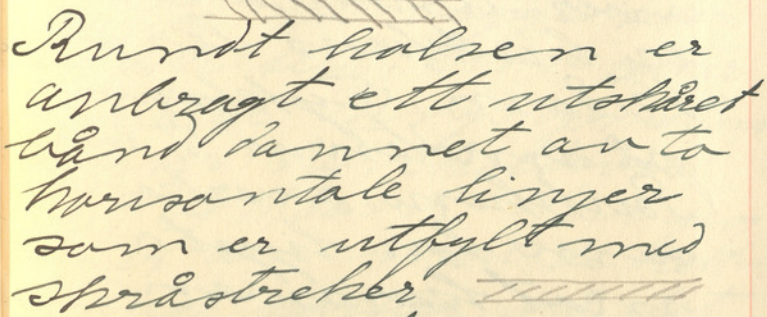 Rundt halsen er
anbragt ett utskåret
bånd dannet av to
horisontale linjer
som er utfylt med
skråstreker